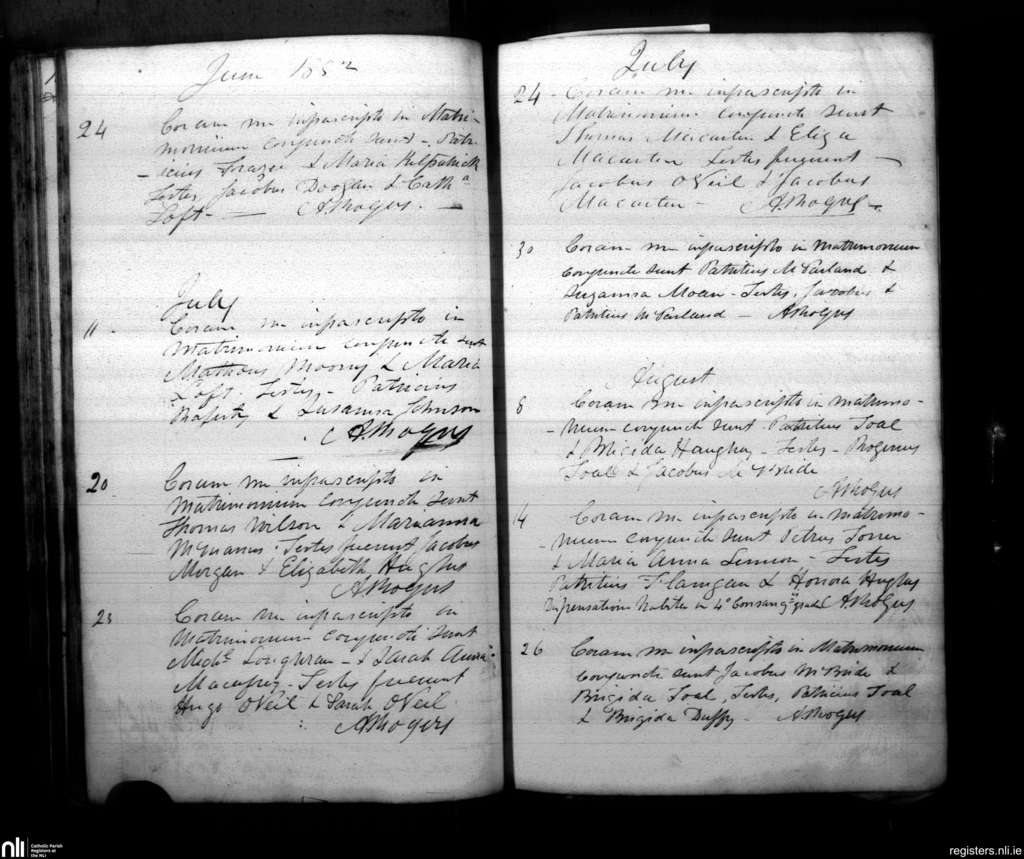 June 1852
24 Coram me infrascripto in Matri-
monium conjuncti sunt - Patri-
-icius Frazer & Maria Kilpatrick
Testes, Jacobus Doogan & Cathᵃ
Loft - ARogers. -
July
11 - Coram me infrascripto in
Matrimonium conjuncti sunt
Matheus Moony & Maria
Loft. Testes, - Patricius
Rafferty & Susanna Johnson
ARogers
20 Coram me infrascripto in
Matrimonium conjuncti sunt
Thomas Wilson & Marianna
McManus. Testes fuerunt Jacobus
Morgan & Elizabeth Hughes
ARogers
23 Coram me infrascripto in
Matrimonium conjuncti sunt
Michˡ Loughran - & Sarah Anna
Macaffrey - Testes fuerunt
Hugo ONeil & Sarah ONeil
ARogers
July
24 - Coram me infrascripto in
Matrimonium conjuncti sunt
Thomas Macarten & Eliza
Macarten Testes fuerunt -
Jacobus ONeil & Jacobus
Macarten - ARogers -
30 Coram me infrascripto in Matrimonium
conjuncti sunt Patritius McParland &
Suzanna Moan - Testes, Jacobus &
Patritius McParland - ARogers
August
8 Coram me infrascripto in matrimo-
-nium conjuncti sunt Patritius Toal
& Brigida Haughey - Testes -
Toal & Jacobus McBride
ARogers
14 Coram me infrascripto in matrimo-
-nium conjuncti sunt Petrus
& Maria Anna Lennon - Testes
Patritius Flanigan & Honora Hughes
Dispensatione habita in 4º Consangᵗⁱˢ gradu ARogers
26 Coram me infrascripto in Matrimonium
conjuncti sunt Jacobus McBride &
Brigida Toal, Testes, Patricius Toal
& Brigida Duffy - ARogers
nli Catholic Parish
Registers at
the NLI
registers.nli.ie